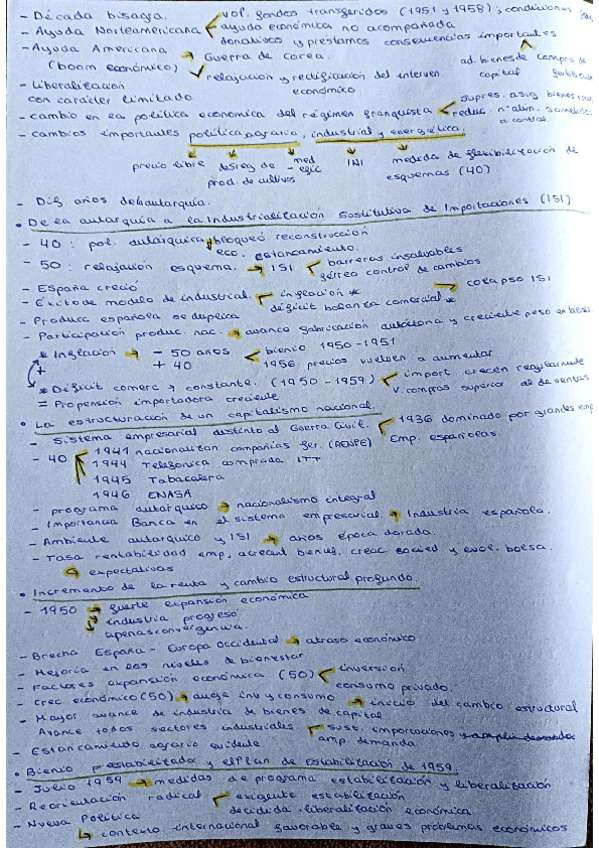 - Década bisagra.
- Ayuda Norteamericana vol. fondos transferidos (1951 y 1958); condiciones
ayuda económica no acompañada
donativos y préstamos consecuencias importantes
- Ayuda Americana → Guerra de Corea.
(boom económico) relajación y rectificación del interven. económico
ad. bienes de compra de capital
- liberalización
con carácter limitado
- cambio en la política económica del régimen franquista supres. asig. bienes
reduc. n° alim. sometidos a control.
- cambios importantes política agraria, industrial y energética.
precio libre desieg de - med egic prod. de cultivos INI medida de flexibilización de esquemas (40)
- Dif. años de autarquía.
• De la autarquía a la Industrialización Sustitutiva de Importaciones (ISI)
- 40: pol. autárquica → bloqueó reconstrucción
eco. estancamiento.
- 50: relajación esquema. → ISI barreras insalvables
férreo control de cambios
- España creció
- Éxito de modelo de industrial. inflación * → colapso ISI
déficit balanza comercial *
- Producc española se duplica
- Participación produc. nac. → avance fabricación autóctona y creciente peso en bienes
* Inflación → - 50 años bienio 1950-1951
+ 40 1956 precios vuelven a aumentar
+
* Déficit comerc → constante. (1950-1959) import. crecen regularmente
v. compras superior al de ventas
= Propensión importadora creciente
• La estructuración de un capitalismo nacional.
- Sistema empresarial distinto al Guerra Civil. 1936 dominado por grandes emp
Emp. españolas.
- 40 1941 nacionalizan compañías fer. (RENFE)
1944 Telefónica comprada ITT
1945 Tabacalera
1946 ENASA
- programa autárquico → nacionalismo integral
- Importancia Banca en el sistema empresarial. → Industria española.
- Ambiente autárquico y ISI → años época dorada.
- Tasa rentabilidad emp, acreant bienes, creac socied y evol. bolsa.
↳ expectativas
• Incremento de la renta y cambio estructural profundo.
- 1950 → fuerte expansión económica
industria progresó
apenas convergencia.
- Brecha España - Europa occidental → atraso económico
- Mejoría en los niveles de bienestar
- Factores expansión económica (50) inversión
consumo privado.
- Crec económico (50) → auge inv y consumo → inicio del cambio estructural
- Mayor avance de industria de bienes de capital
Avance todos sectores industriales sust. importaciones
amp. demanda
- Estancamiento agrario evidente
• Bienio preestabilizador y el Plan de Estabilización de 1959.
- Julio 1959 → medidas de programa estabilización y liberalización
- Reorientación radical exigente estabilización
decidida liberalización económica
- Nueva Política
↳ contexto internacional favorable y graves problemas económicos